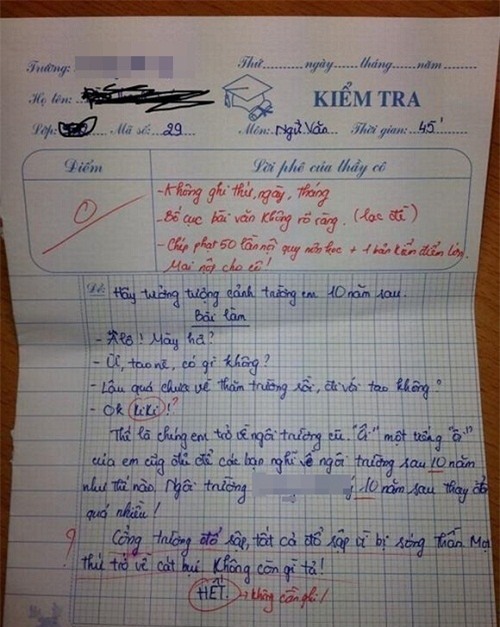 Trường:
Thứ ngày tháng năm
Họ tên:
KIỂM TRA
Lớp: Mã số: 29 Môn: Ngữ Văn Thời gian: 45'
Điểm
Lời phê của thầy cô
0
- Không ghi thứ, ngày, tháng
- Bố cục bài văn không rõ ràng. (lạc đề)
- Chép phạt 50 lần nội quy môn học + 1 bản kiểm điểm lớn.
Mai nộp cho cô!
Đề: Hãy tưởng tượng cảnh trường em 10 năm sau.
Bài làm
- Alô! Mày hả?
- Ừ, tao nè, có gì không?
- Lâu quá chưa về thăm trường rồi, đi với tao không?
- Ok kiki!?
Thế là chúng em trở về ngôi trường cũ. "Á" một tiếng "á"
của em cũng đủ để các bạn nghĩ về ngôi trường sau 10 năm
như thế nào. Ngôi trường 10 năm sau thay đổi
quá nhiều!
? Cổng trường đổ sập, tất cả đổ sập vì bị sóng thần. Mọi
thứ trở về cát bụi. Không còn gì tả!
HẾT. → không cần ghi!